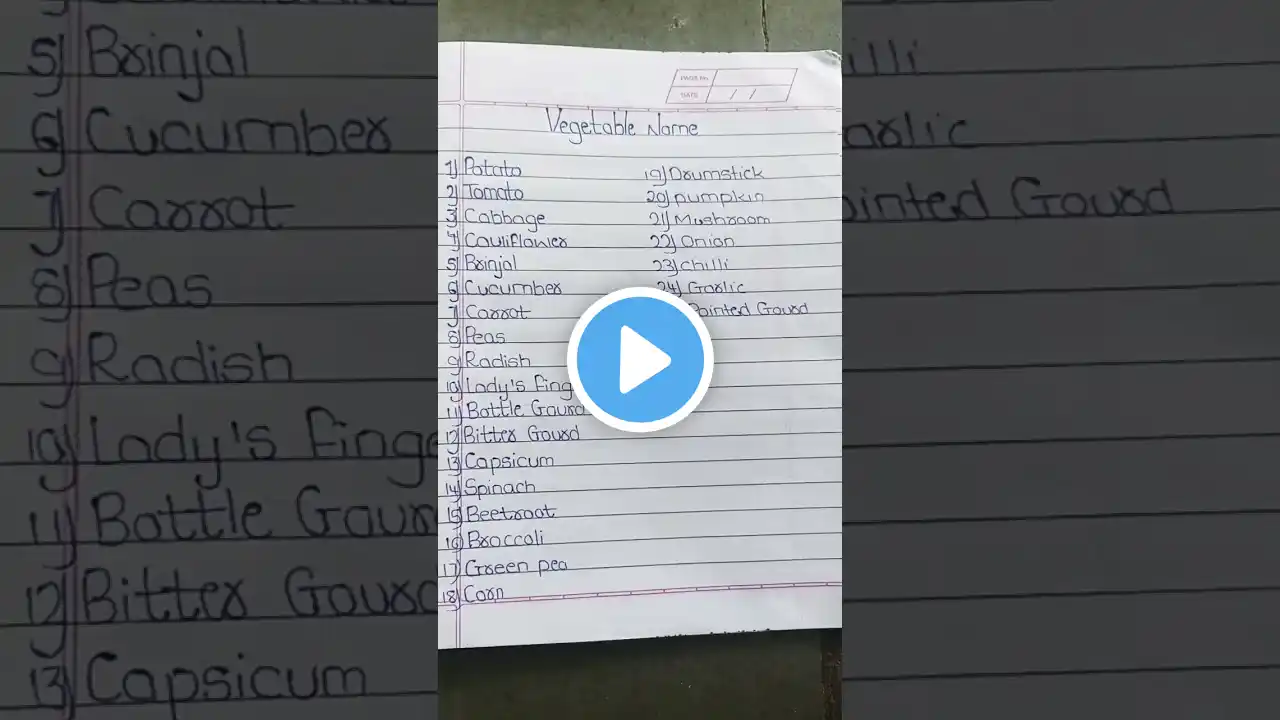 PAGE No.
DATE / /
Vegetable Name
1) Potato
2) Tomato
3) Cabbage
4) Cauliflower
5) Brinjal
6) Cucumber
7) Carrot
8) Peas
9) Radish
10) Lady's Fing
11) Bottle Gourd
12) Bitter Gourd
13) Capsicum
14) Spinach
15) Beetroot
16) Broccoli
17) Green pea
18) Corn
19) Drumstick
20) pumpkin
21) Mushroom
22) Onion
23) chilli
24) Garlic
Pointed Gourd
5) Brinjal
6) Cucumber
7) Carrot
8) Peas
9) Radish
10) Lady's Finge
11) Bottle Gour
12) Bitter Gourd
13) Capsicum
illi
arlic
ointed Gourd